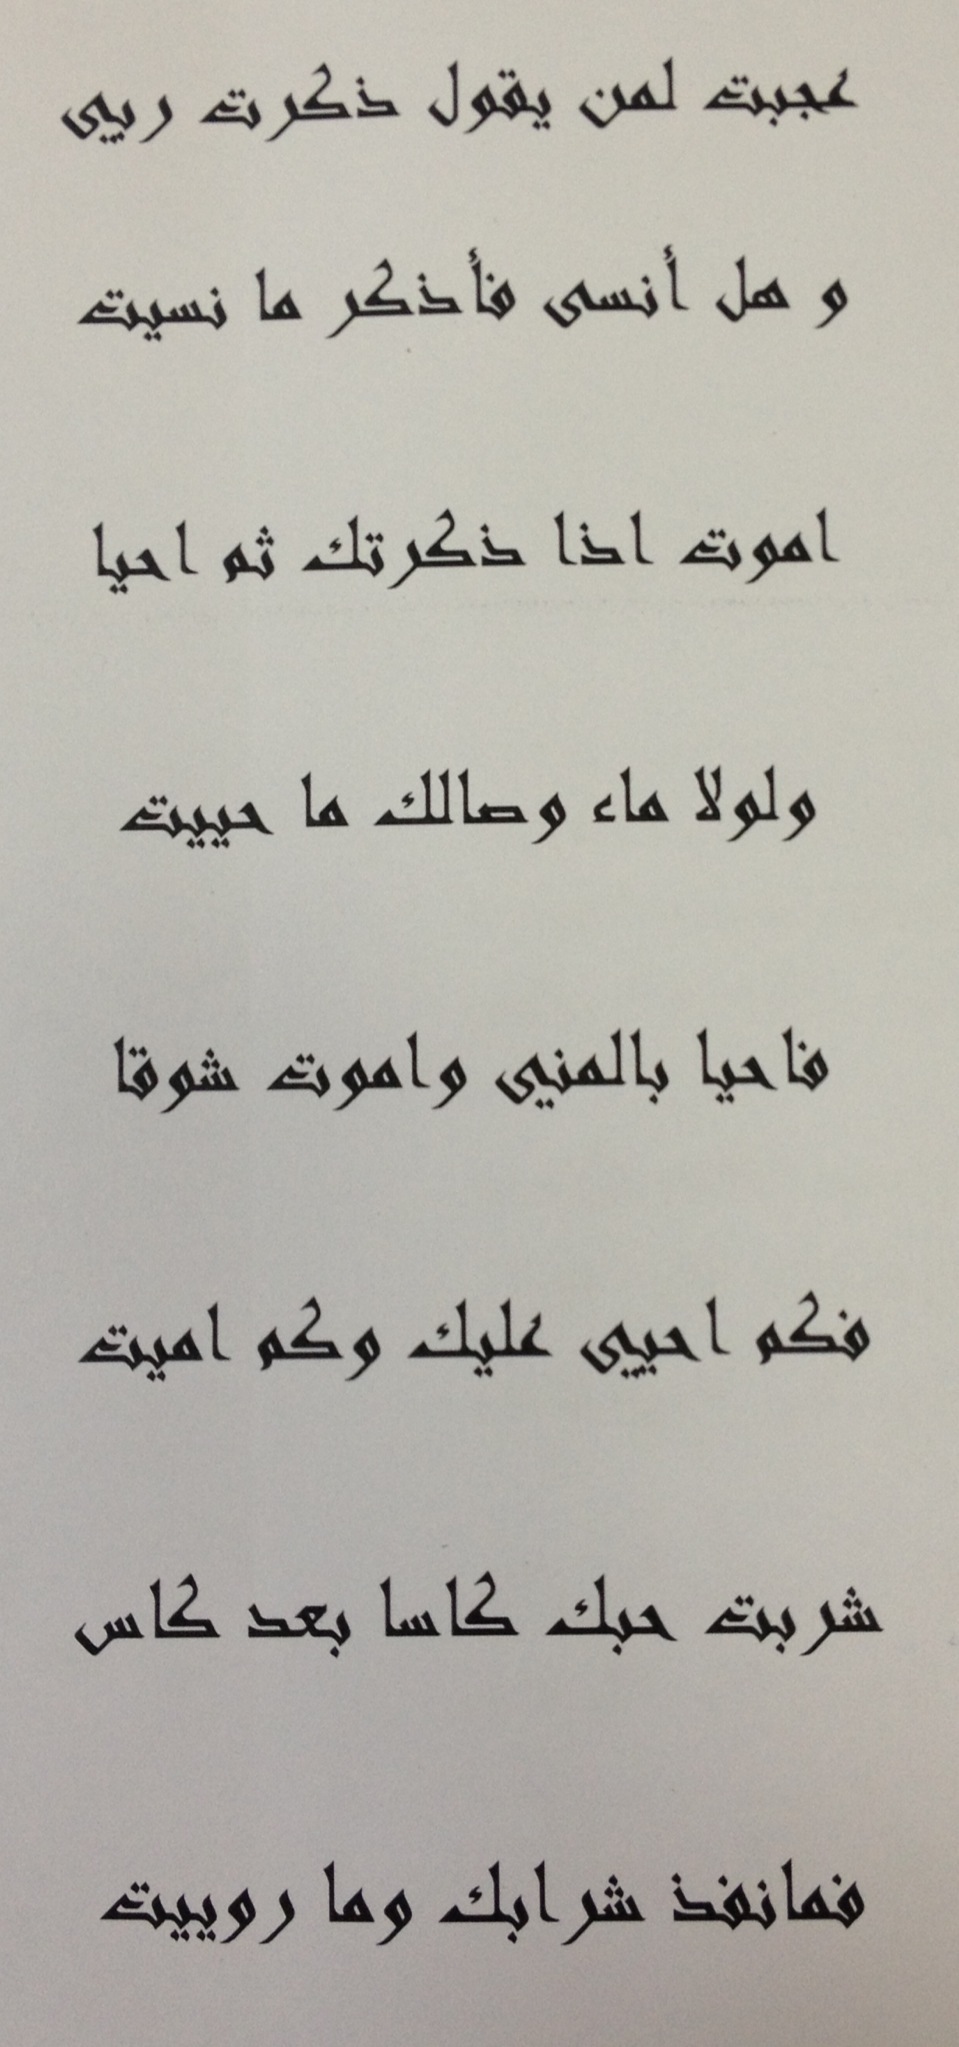 عجبت لمن يقول ذكرت ربي
و هل أنسى فأذكر ما نسيت
اموت اذا ذكرتك ثم احيا
ولولا ماء وصالك ما حييت
فاحيا بالمني واموت شوقا
فكم احيي عليك وكم اميت
شربت حبك كاسا بعد كاس
فمانفذ شرابك وما روييت